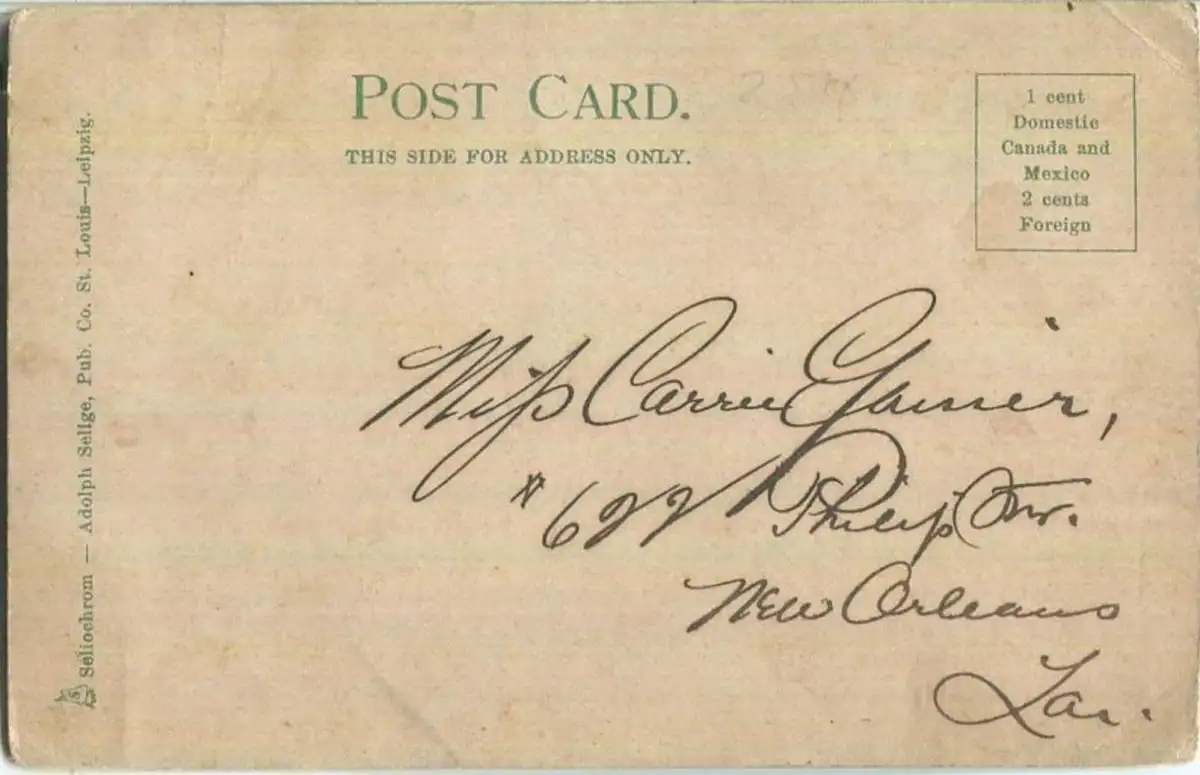 POST CARD.
THIS SIDE FOR ADDRESS ONLY.
1 cent
Domestic
Canada and
Mexico
2 cents
Foreign
Seliochrom — Adolph Selige, Pub. Co. St. Louis—Leipzig.
Miss Carrie
#622 Philip
New Orleans
La.